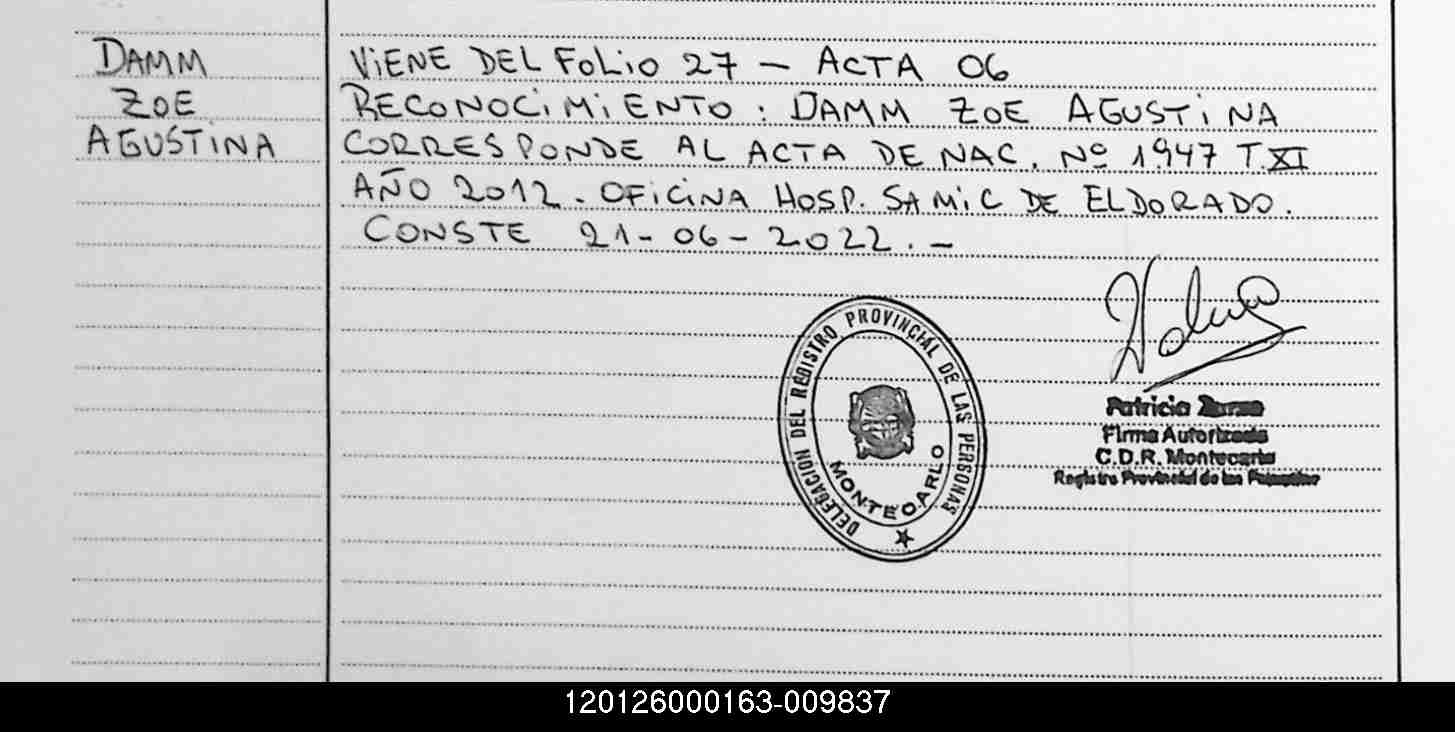 DAMM
ZOE
AGUSTiNA
ViENE DEL FOLiO 27 - ACTA 06
RECONOCiMiENTO : DAMM ZOE AGUSTiNA
CORRESPONDE AL ACTA DE NAC. Nº 1947 T. XI
AÑO 2012. OFiCiNA HOSP. SAMiC DE ELDORADO.
CONSTE 21-06-2022.-
DELEGACION DEL REGISTRO PROVINCIAL DE LAS PERSONAS
MONTECARLO
Patricia
Firma Autorizada
C.D.R. Montecarlo
Registro Provincial de las Personas
120126000163-009837